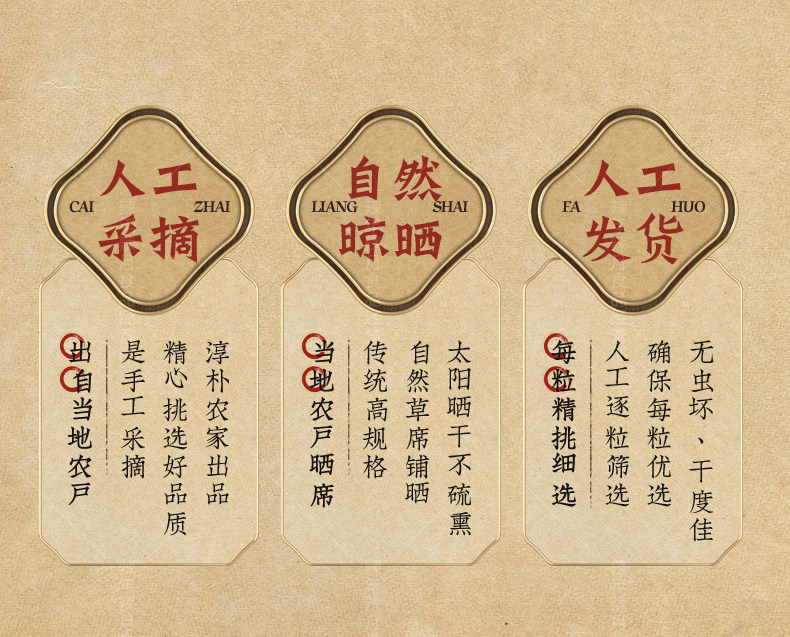 人工
CAI ZHAI
采摘
出自当地农户
是手工采摘
精心挑选好品质
淳朴农家出品
自然
LIANG SHAI
晾晒
当地农户晒席
传统高规格
自然草席铺晒
太阳晒干不硫熏
人工
FA HUO
发货
每粒精挑细选
人工逐粒筛选
确保每粒优选
无虫坏、干度佳